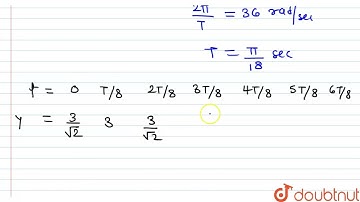 2π/T = 36 rad/sec
T = π/18 sec
t = 0 T/8 2T/8 3T/8 4T/8 5T/8 6T/8
y = 3/√2 3 3/√2
doubtnut